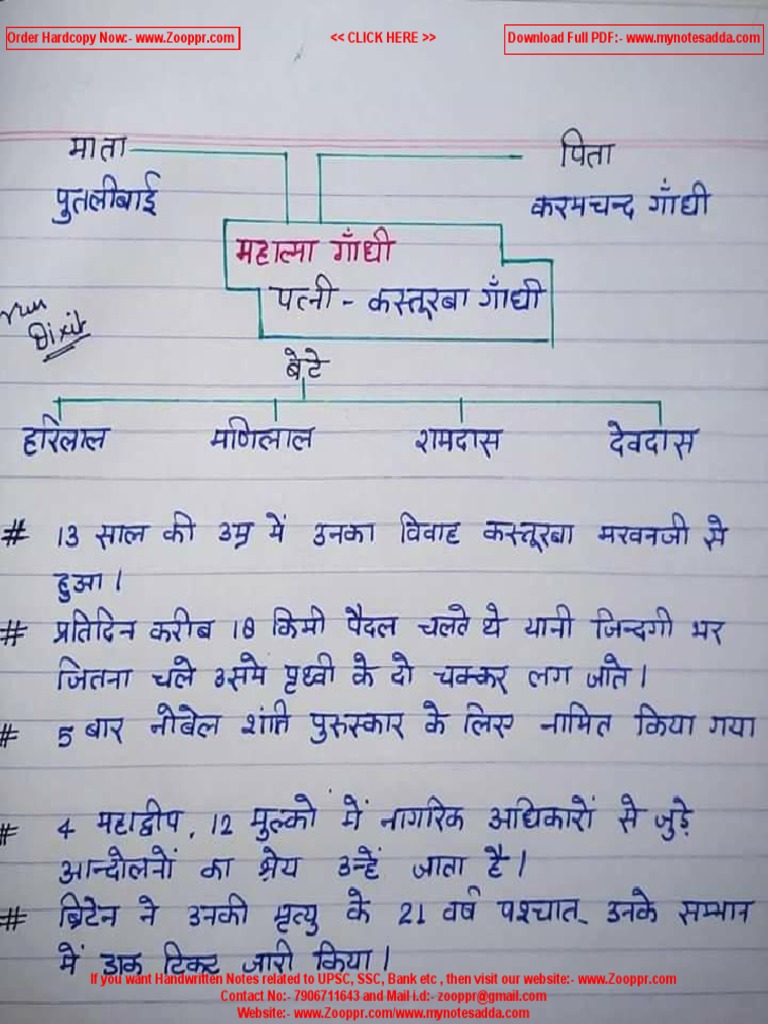 Order Hardcopy Now:- www.Zooppr.com
<< CLICK HERE >>
Download Full PDF:- www.mynotesadda.com
माता
पिता
पुतलीबाई
करमचन्द गाँधी
महात्मा गाँधी
पत्नी - कस्तूरबा गाँधी
Dixit
बेटे
हरिलाल मणिलाल रामदास देवदास
# 13 साल की उम्र में उनका विवाह कस्तूरबा मखनजी से
हुआ।
# प्रतिदिन करीब 18 किमी पैदल चलते थे यानी जिन्दगी भर
जितना चले उसमे पृथ्वी के दो चक्कर लग जाते।
# 5 बार नोबेल शांति पुरुस्कार के लिए नामित किया गया
# 4 महाद्वीप, 12 मुल्कों में नागरिक अधिकारों से जुड़े
आन्दोलनों का श्रेय उन्हें जाता है।
# ब्रिटेन ने उनकी मृत्यु के 21 वर्ष पश्चात् उनके सम्मान
में डाक टिकट जारी किया।
If you want Handwritten Notes related to UPSC, SSC, Bank etc , then visit our website:- www.Zooppr.com
Contact No:- 7906711643 and Mail i.d:- zooppr@gmail.com
Website:- www.Zooppr.com/www.mynotesadda.com